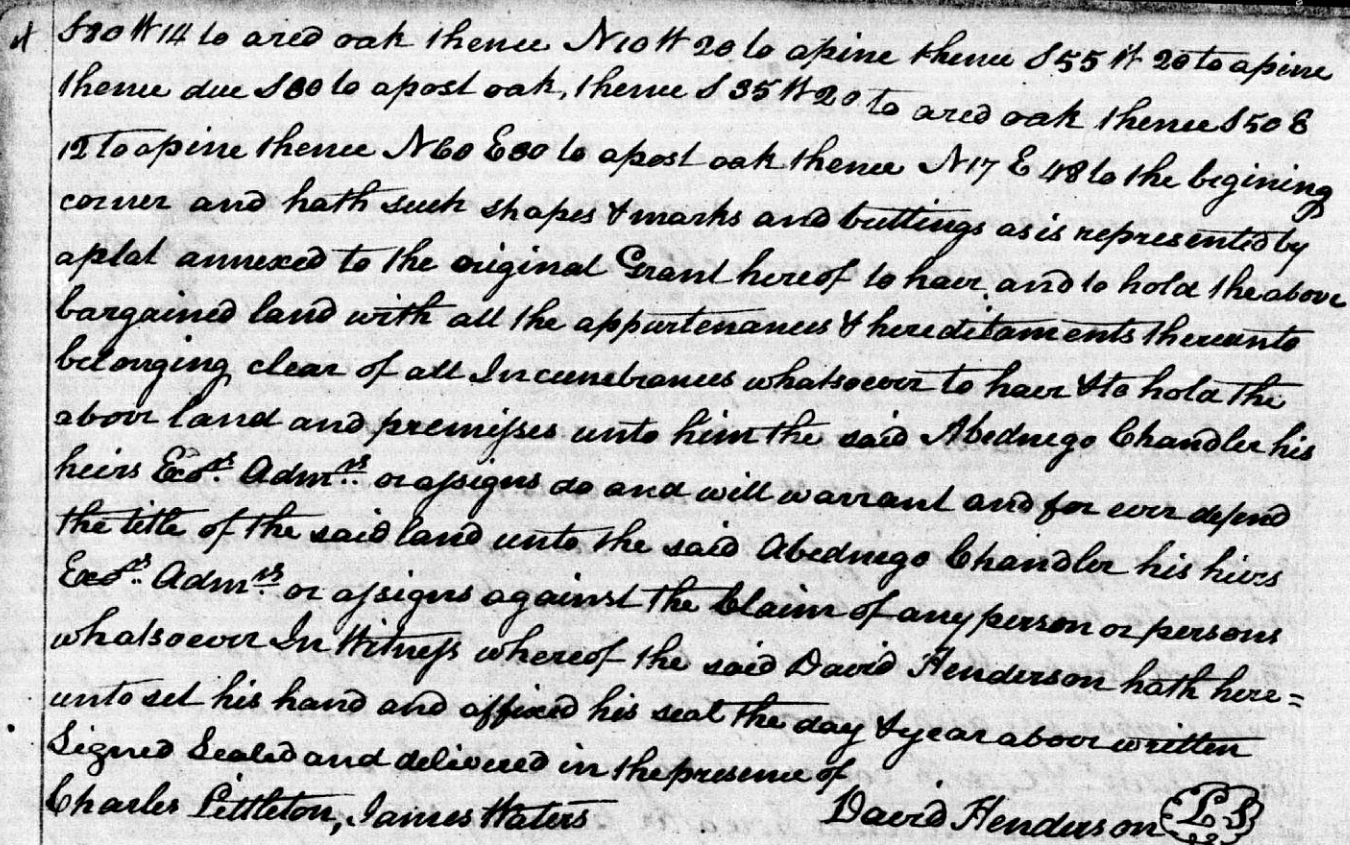 S80 W 14 to a red oak thence N10 W 20 to a pine thence S 55 W 20 to a pine
thence due S 80 to a post oak, thence S 35 W 20 to a red oak thence S 50 E
12 to a pine thence N60 E80 to a post oak thence N17 E 48 to the begining
corner and hath such shapes & marks and buttings as is represented by
a plat annexed to the original Grant hereof to have and to hold the above
bargained land with all the appurtenances & hereditaments thereunto
belonging clear of all Incumbrances whatsoever to have & to hold the
above land and premisses unto him the said Abednego Chandler his
heirs Exors. Admrs. or assigns do and will warrant and for ever defend
the title of the said land unto the said Abednego Chandler his hiers
Exors. Admrs. or assigns against the Claim of any person or persons
whatsoever In Witness whereof the said David Henderson hath here=
unto set his hand and affixed his seal the day & year above written
Signed Sealed and delivered in the presence of
Charles Littleton, James Waters David Henderson LS